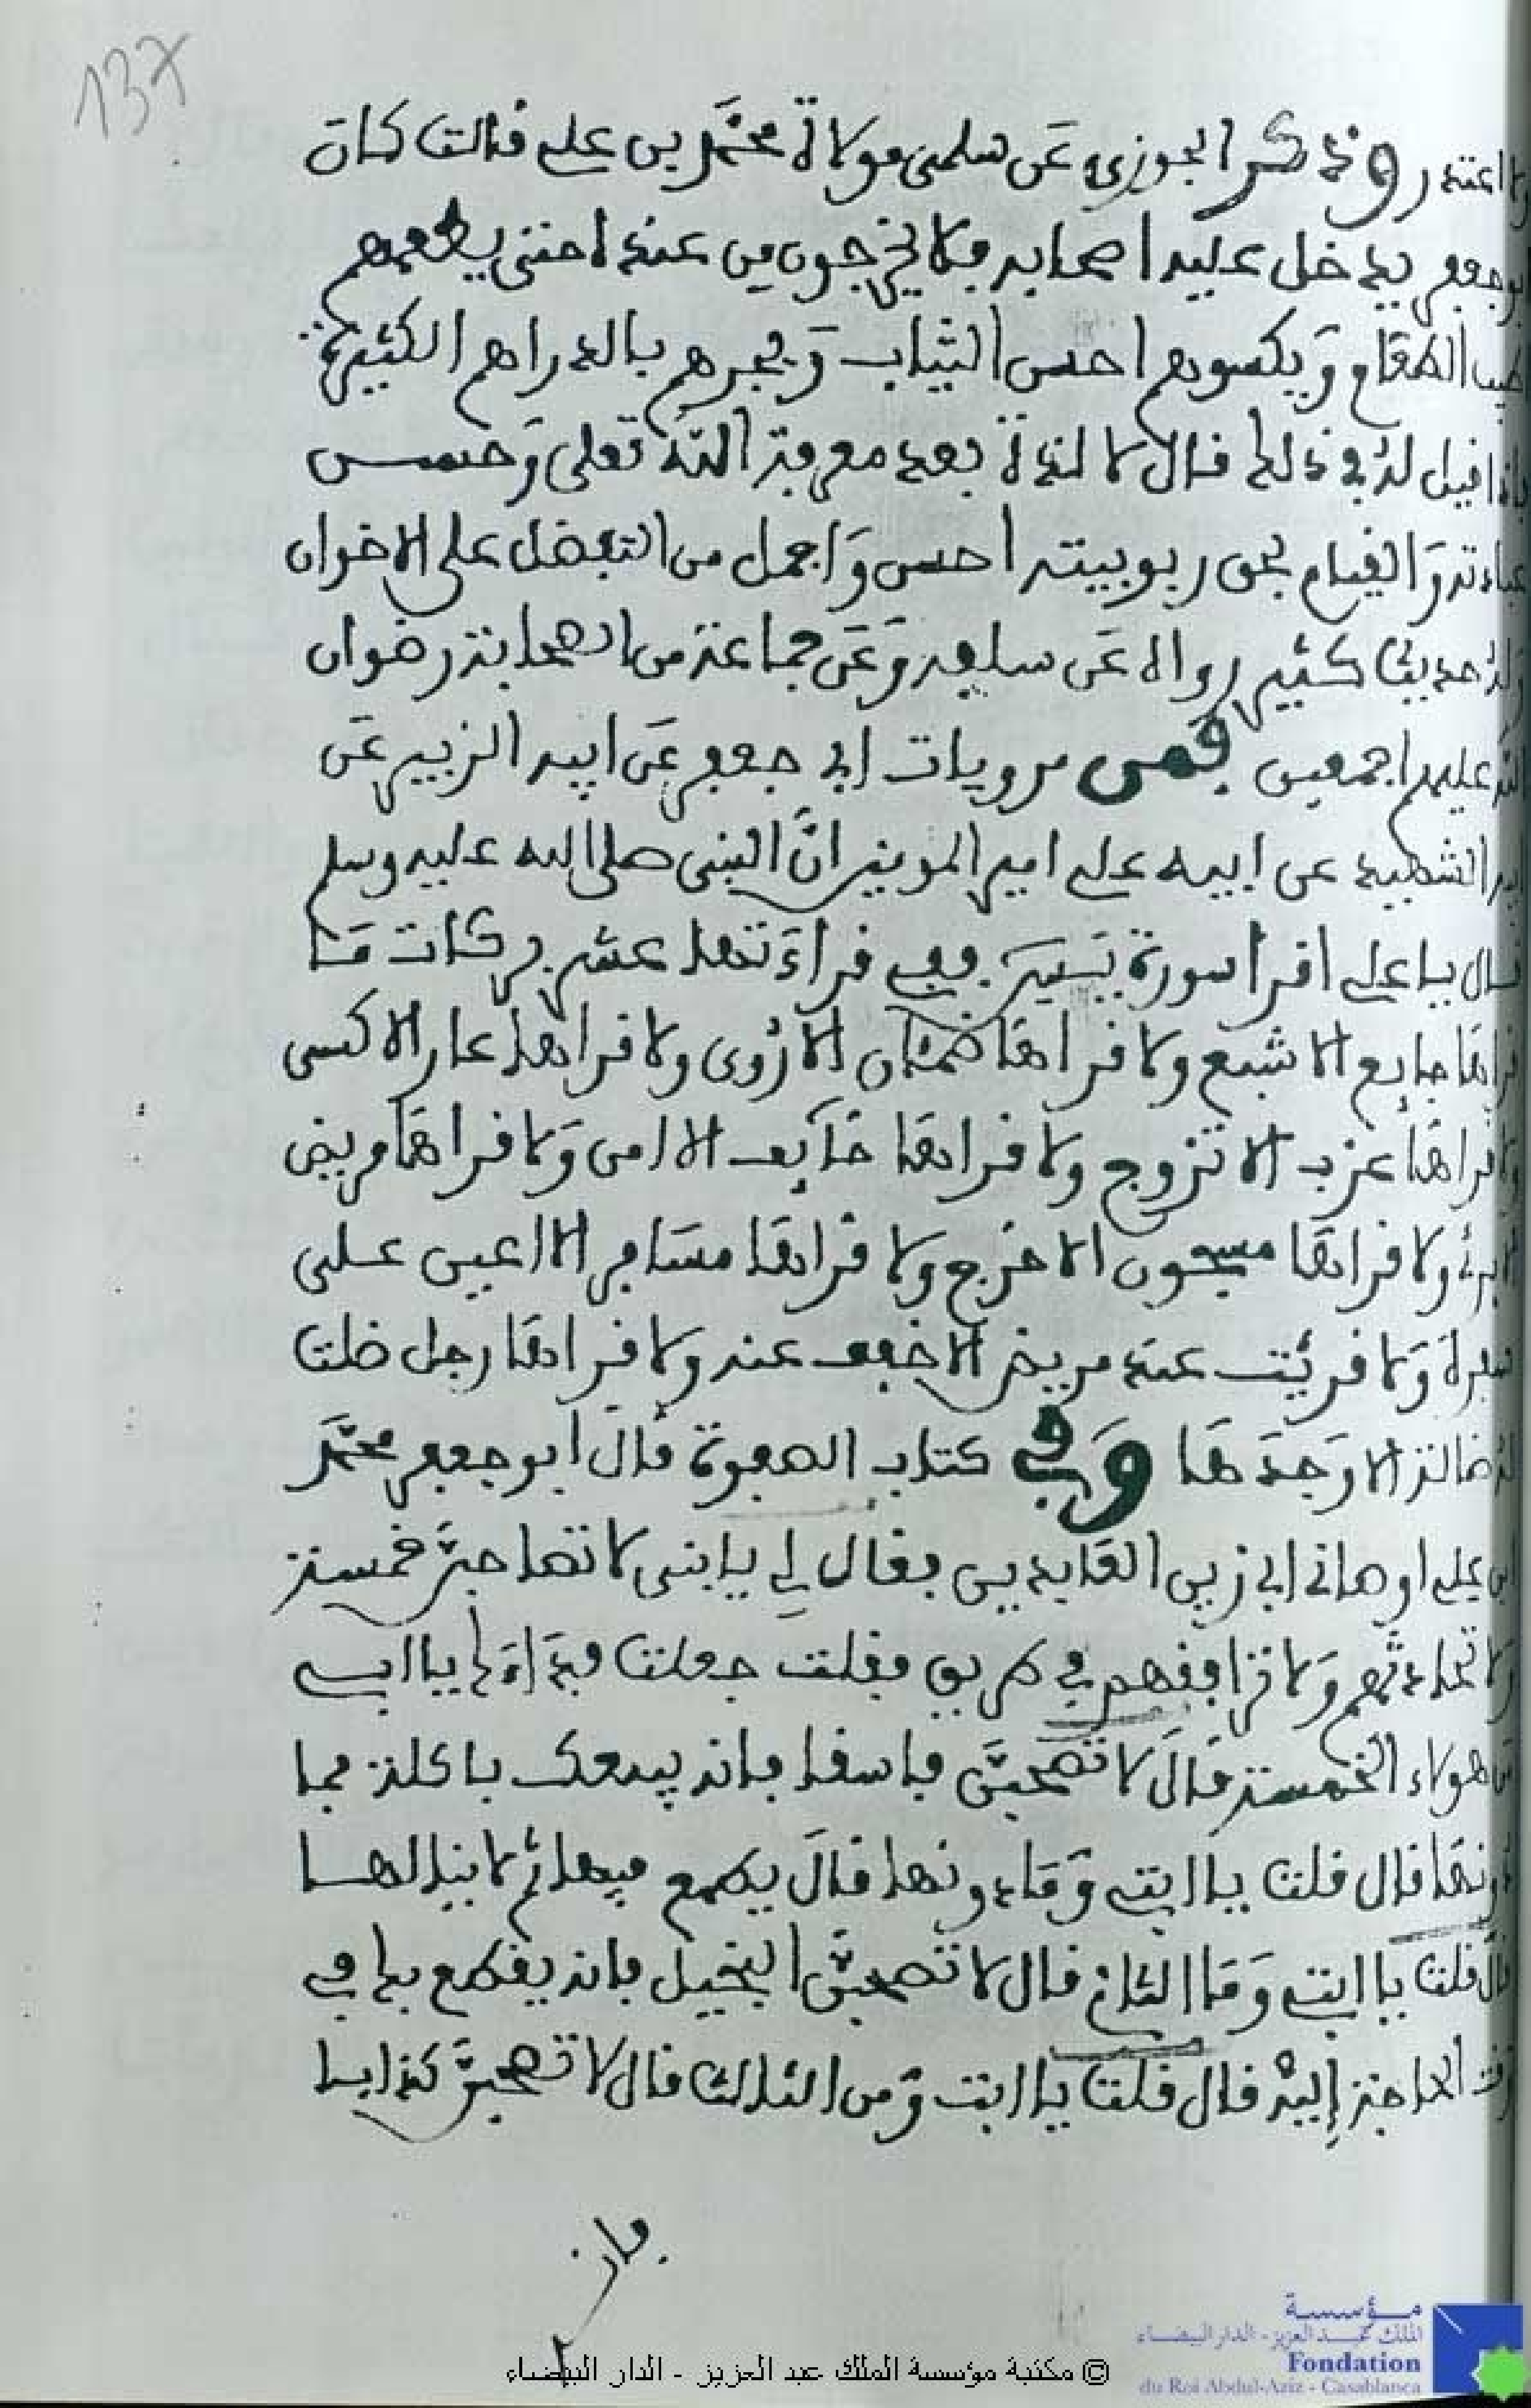 137
اعتذر وذكر الجوزي عن سلمى مولاة محمد بن علي قالت كان
ابو جعفر يدخل عليه اصحابه فلا يخرجون من عنده احتى يطعمهم
طيب الطعام ويكسوهم احسن الثياب ويجبرهم بالدراهم الكثيرة
فاذا قيل له في ذلك قال لا لذة بعد معرفة الله تعلى وحسن
عبادته والقيام بحق ربوبيته احسن واجمل من التفضل على الاخوان
وله حديث كثير رواه عن سلفه وعن جماعة من الصحابة رضوان
الله عليهم اجمعين فمن مرويات ابي جعفر عن ابيه الزبير عن
ابيه الشهيد عن ابيه علي امير المومنين ان النبي صلى الله عليه وسلم
قال يا علي اقرا سورة يس ففي قراءتها عشر بركات ما
قراها جايع الا شبع ولا قراها ضمئان الا رُوى ولا قراها عار الا كسى
ولا قراها عزب الا تزوج ولا قراها خآيف الا امن ولا قراها مريض
الا برئ ولا قراها مسجون الا خرج ولا قراها مسافر الا اعين على
سفره ولا قرئت عند مريض الا خفف عنه ولا قراها رجل ضلت
له ضالة الا وجدها وفي كتاب الصفوة قال ابو جعفر محمد
ابن علي اوصاني ابي زين العابدين فقال لي يا بنى لا تصاحب خمسة
ولا تحادثهم ولا ترافقهم في طريق فقلت جعلت فداءك يا ابت
من هولاء الخمسة قال لا تصحبن فاسقا فانه يبيعك باكلة فما
دونها قال قلت يا ابت وما دونها قال يطمع فيها ثم لا ينالها
قال قلت يا ابت وما الثاني قال لا تصحبن البخيل فانه يقطع بك في
وقت الحاجة إليه قال قلت يا ابت ومن الثالث قال لا تصحبن كذابا
فانه
© مكتبة مؤسسة الملك عبد العزيز - الدار البيضاء
مؤسسة
الملك عبد العزيز - الدار البيضاء
Fondation
du Roi Abdul-Aziz - Casablanca